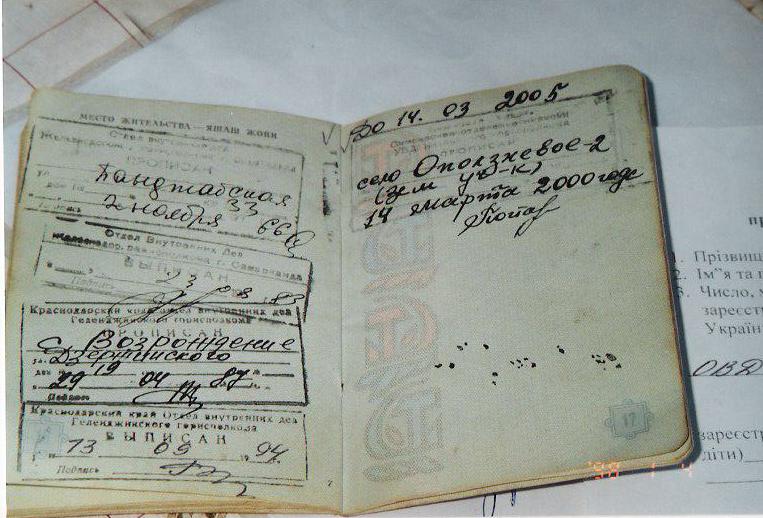 МЕСТО ЖИТЕЛЬСТВА — ЯШАШ ЖОЙИ
Отдел внутренних
ПРОПИСАН
Панджабская
33
2 ноября 66
Подпись
Отдел Внутренних Дел
г. Самарканда
ВЫПИСАН
23 08 83
Подпись
Краснодарский край отдел внутренних дел
Геленджикского горисполкома
ПРОПИСАН
с Возрождение
ул. Дзержинского
дом 19
29 04 87
Подпись
Краснодарский край Отдел внутренних дел
Геленджикского горисполкома
ВЫПИСАН
13 09 1994
Подпись
До 14. 03 2005
ПРОПИСАН
село Оползневое-2
(зем уч-к)
14 марта 2000 года
17
1. Прізвищ
2. Ім"я та п
3. Число, м
зареєст
Україн
ОВД
зареєстр
діти)